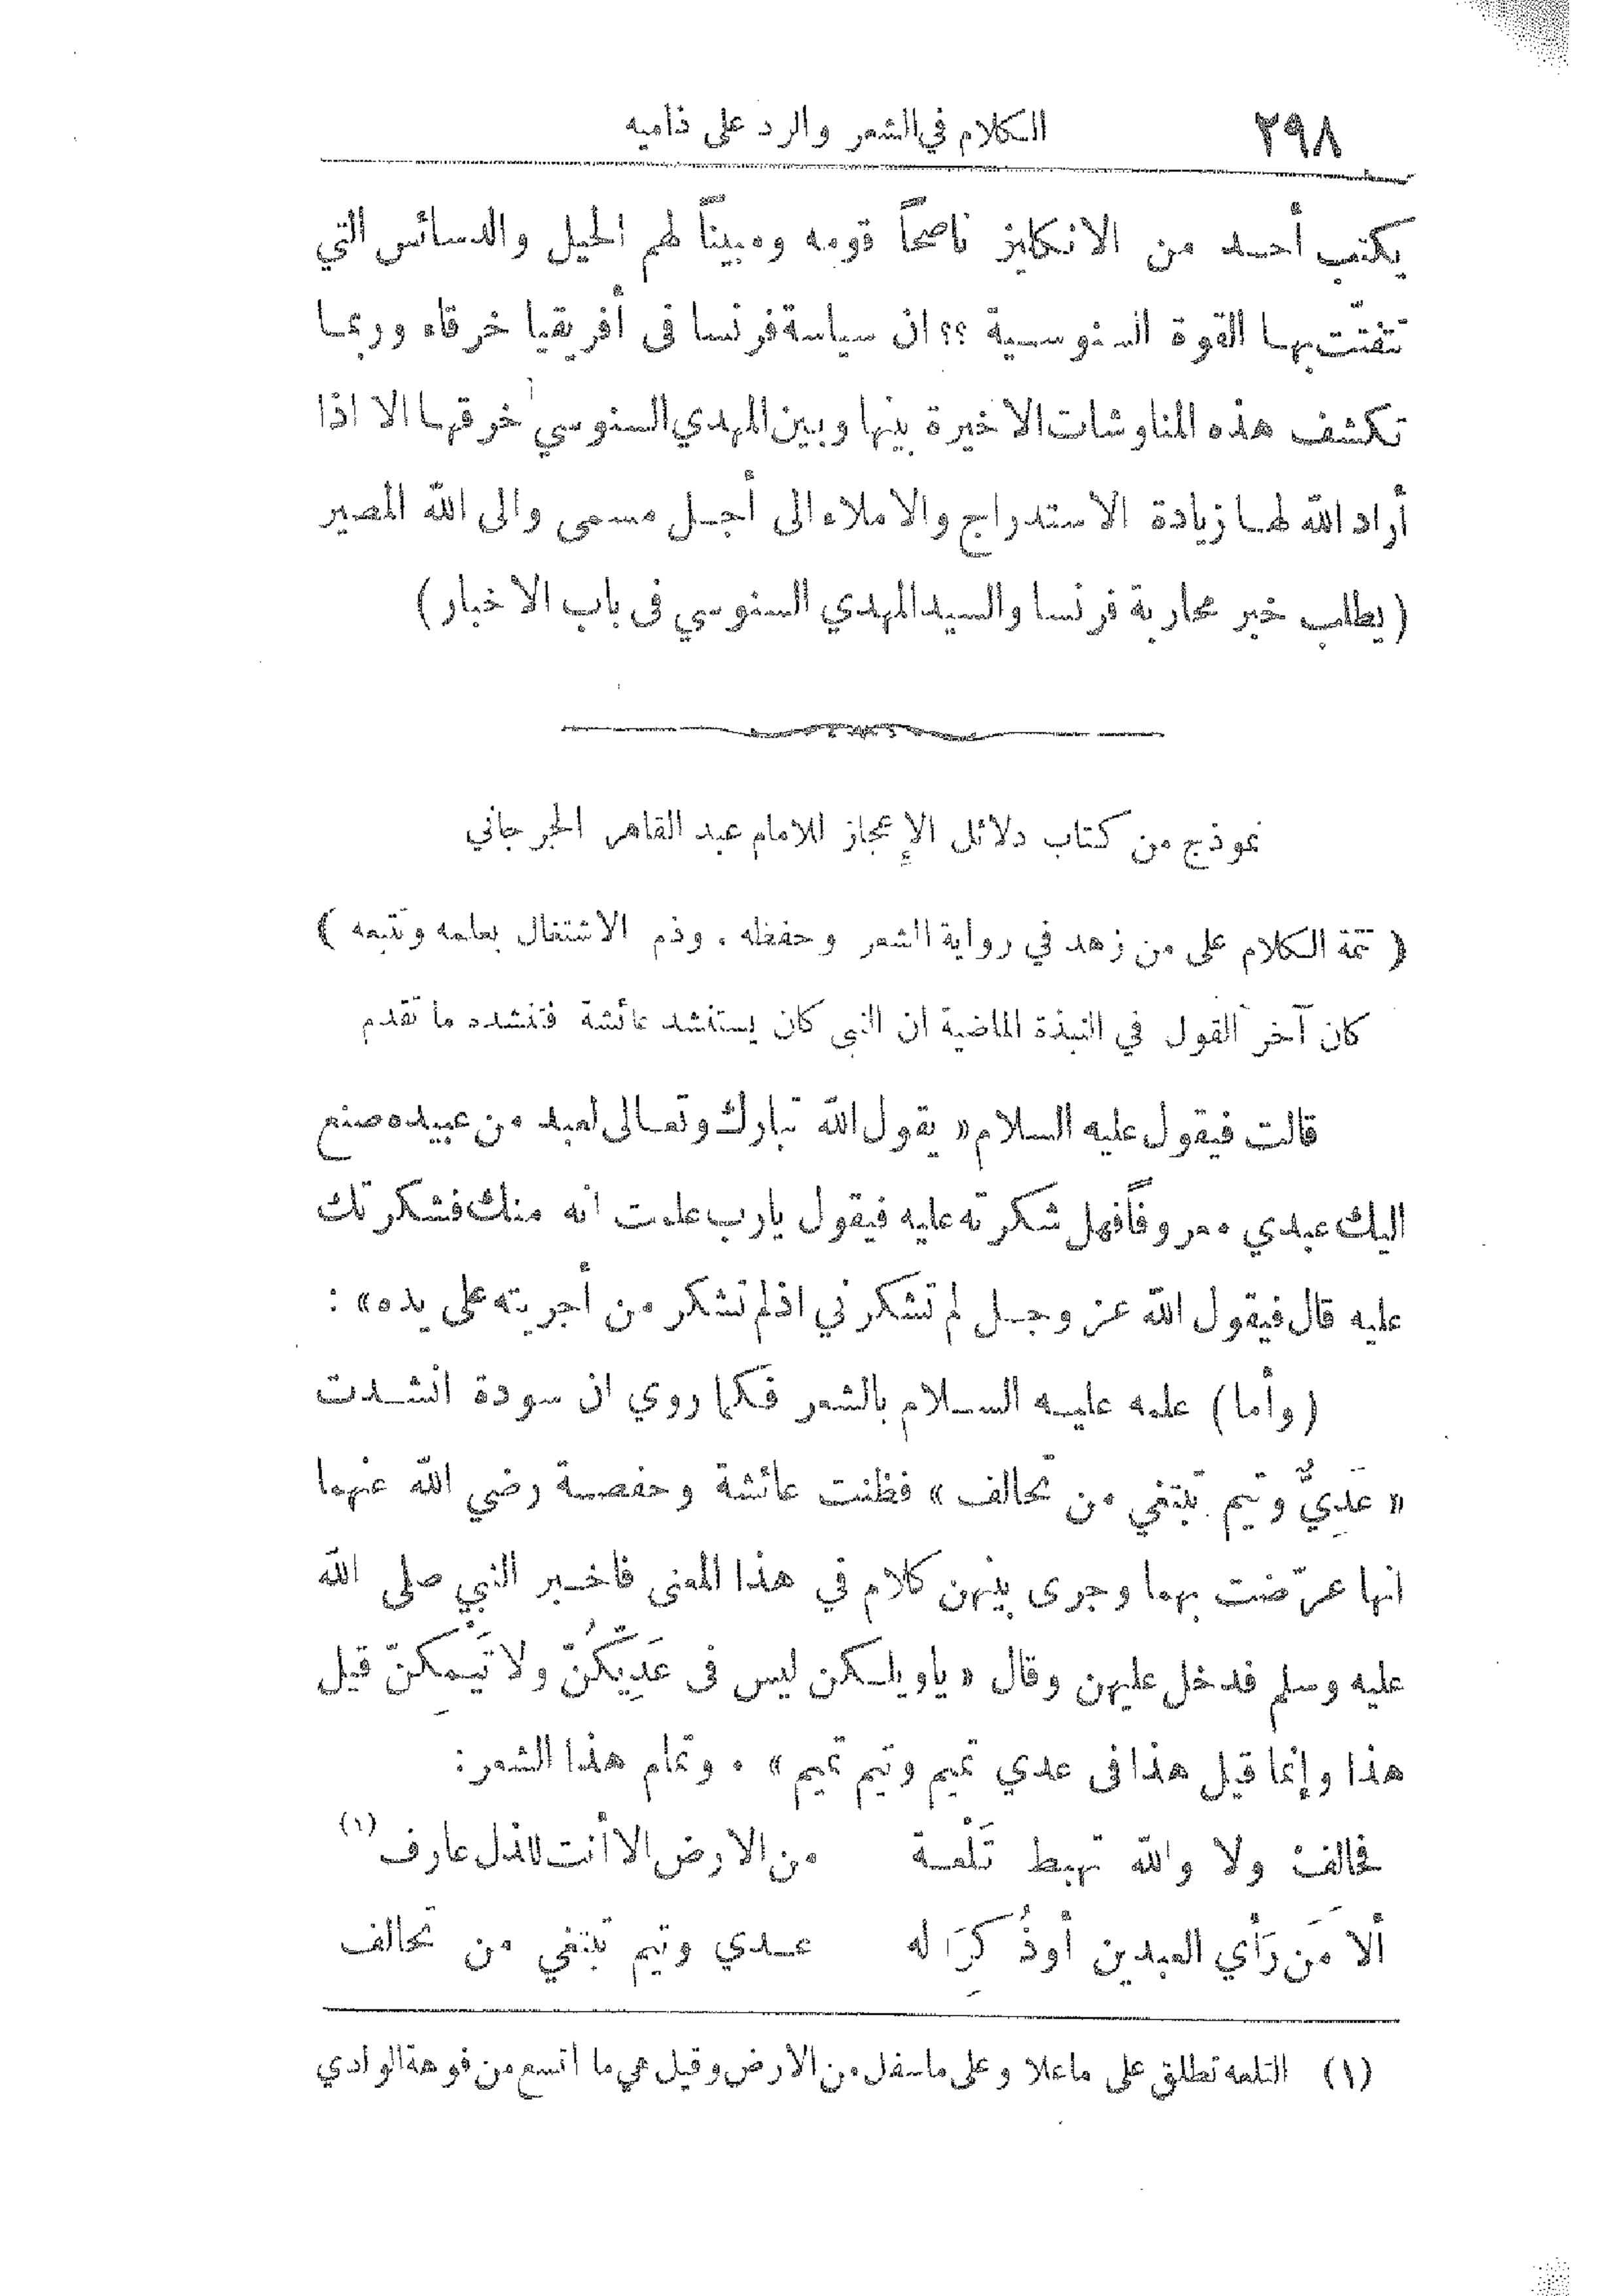 ٢٩٨ الكلام في الشعر والرد على ذاميه
يكتب أحد من الانكليز ناصحاً قومه ومبيناً لهم الحيل والدسائس التي
تتفتّت بها القوة السنوسية ؟؟ ان سياسة فرنسا فى أفريقيا خرقاء وربما
تكشف هذه المناوشات الاخيرة بينها وبين المهدي السنوسي خرقها الا اذا
أراد الله لها زيادة الاستدراج والاملاء الى أجل مسمى والى الله المصير
(يطلب خبر محاربة فرنسا والسيد المهدي السنوسي فى باب الاخبار)
نموذج من كتاب دلائل الإعجاز للامام عبد القاهر الجرجاني
( تتمة الكلام على من زهد في رواية الشعر وحفظه . وذم الاشتغال بعلمه وتتبعه )
كان آخر القول في النبذة الماضية ان النبي كان يستنشد عائشة فتنشده ما تقدم
قالت فيقول عليه السلام « يقول الله تبارك وتعالى لعبد من عبيده صنع
اليك عبدي معروفاً فهل شكرته عليه فيقول يارب علمت انه منك فشكرتك
عليه قال فيقول الله عز وجل لم تشكرني اذ لم تشكر من أجريته على يده» :
(وأما) علمه عليه السلام بالشعر فكما روي ان سودة انشدت
« عَدِيٌّ وتيم تبتغي من تحالف » فظنت عائشة وحفصة رضي الله عنهما
انها عرّضت بهما وجرى بينهن كلام في هذا المعنى فاخبر النبي صلى الله
عليه وسلم فدخل عليهن وقال « ياويلكن ليس فى عَدِيِّكُنّ ولا تَيْمِكنّ قيل
هذا وإنما قيل هذا فى عدي تميم وتيم تميم » . وتمام هذا الشعر :
فحالفْ ولا والله تهبط تَلْعة من الارض الا أنت للذل عارف (١)
ألا مَن رَأي العبدين أوذُكِرَا له عدي وتيم تبتغي من تحالف
(١) التلعة تطلق على ماعلا وعلى ماسفل من الارض وقيل هي ما اتسع من فوهة الوادي